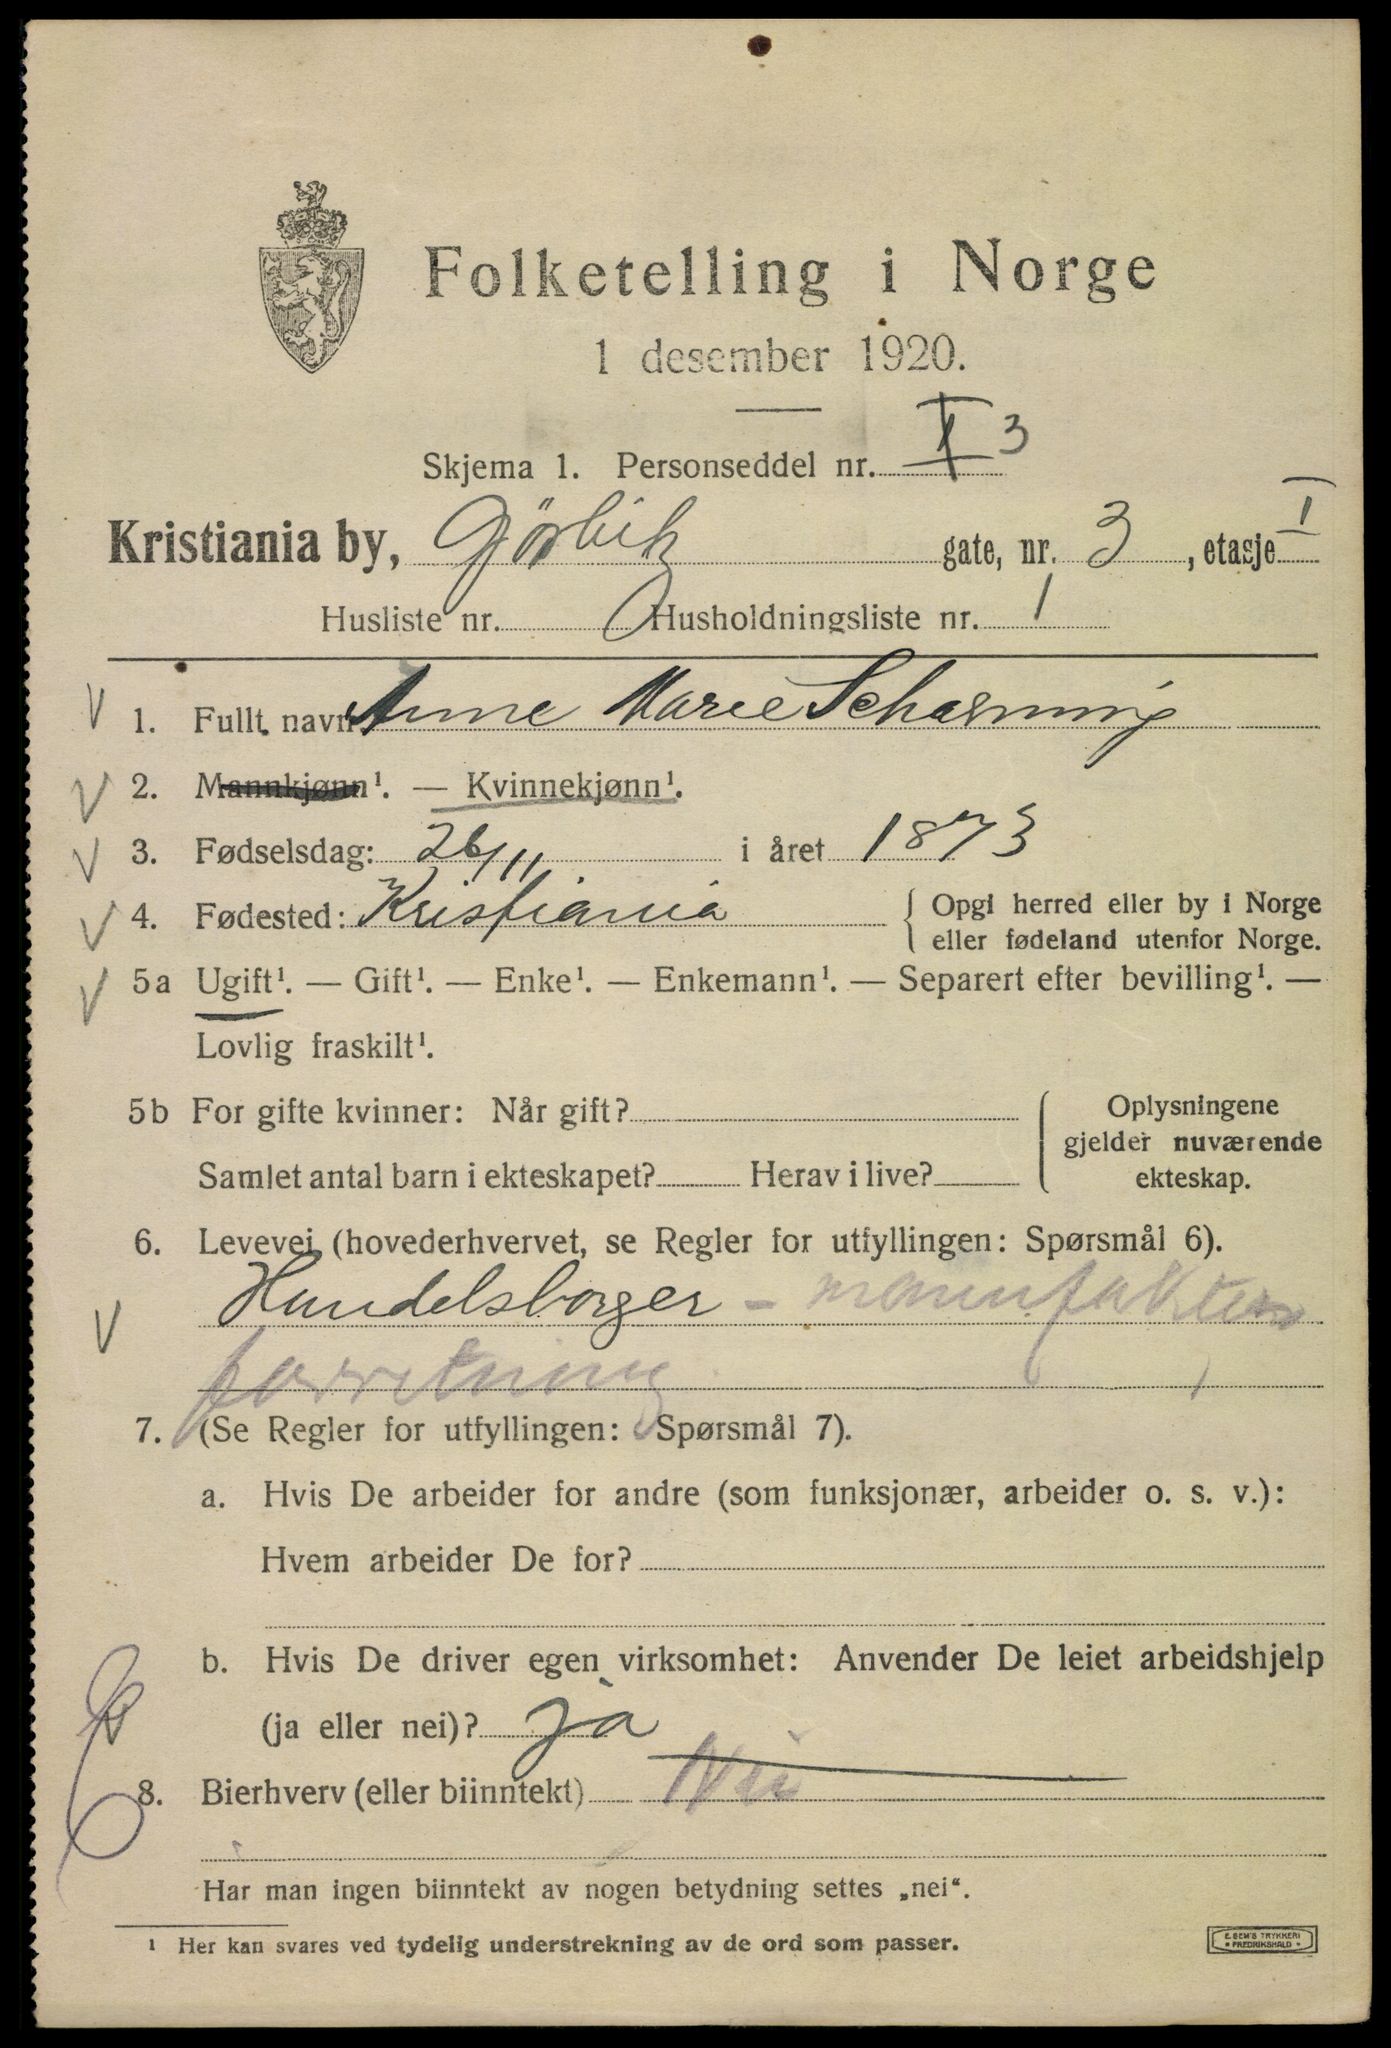 Folketelling i Norge
1 desember 1920.
Skjema 1. Personseddel nr. I 3
Kristiania by, Gjøvik gate, nr. 3, etasje I
Husliste nr. Husholdningsliste nr. 1
1. Fullt navn Anne Marie Scharning
2. Mannkjønn¹. — Kvinnekjønn¹.
3. Fødselsdag: 26/11 i året 1873
4. Fødested: Kristiania { Opgi herred eller by i Norge
eller fødeland utenfor Norge.
5a Ugift¹. — Gift¹. — Enke¹. — Enkemann¹. — Separert efter bevilling¹. —
Lovlig fraskilt¹.
5b For gifte kvinner: Når gift? { Oplysningene
gjelder nuværende
Samlet antal barn i ekteskapet? Herav i live? ekteskap.
6. Levevei (hovederhvervet, se Regler for utfyllingen: Spørsmål 6).
Handelsborger - manufaktur
forretning
7. (Se Regler for utfyllingen: Spørsmål 7).
a. Hvis De arbeider for andre (som funksjonær, arbeider o. s. v.):
Hvem arbeider De for?
b. Hvis De driver egen virksomhet: Anvender De leiet arbeidshjelp
(ja eller nei)? ja
8. Bierhverv (eller biinntekt) Nei
Har man ingen biinntekt av nogen betydning settes „nei“.
¹ Her kan svares ved tydelig understrekning av de ord som passer.
E. SEM'S TRYKKERI
FREDRIKSHALD